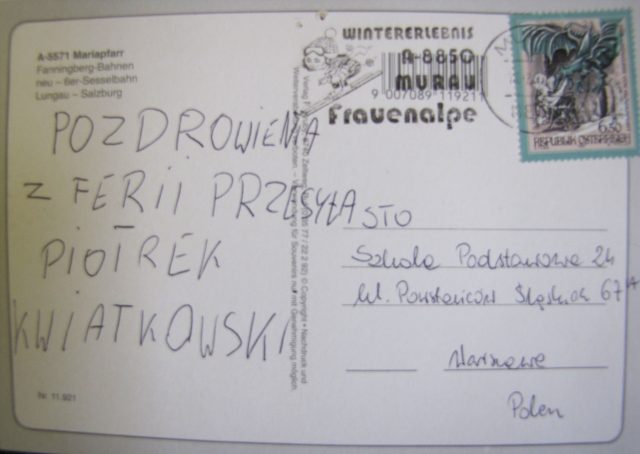 A-8571 Mariapfarr
Fanningberg-Bahnen
neu – 6er-Sesselbahn
Lungau – Salzburg
WINTERERLEBNIS
A-8850
MURAU
9 007089 119211
Frauenalpe
REPUBLIK ÖSTERREICH
POZDROWIENIA
Z FERII PRZESYŁA
PIOTREK
KWIATKOWSKI
STO
Szkoła Podstawowa 24
ul. Powstańców Śląskich 67A
Warszawa
Polen
© Copyright • Nachdruck und
für Souvenirs nur mit Genehmigung möglich.
Nr. 11.921